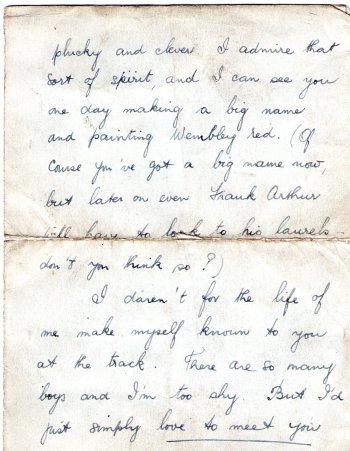 plucky and clever. I admire that
sort of spirit, and I can see you
one day making a big name
and painting Wembley red. (Of
course you've got a big name now,
but later on even Frank Arthur
will have to look to his laurels -
don't you think so?)
I daren't for the life of
me make myself known to you
at the track. There are so many
boys and I'm too shy. But I'd
just simply love to meet you